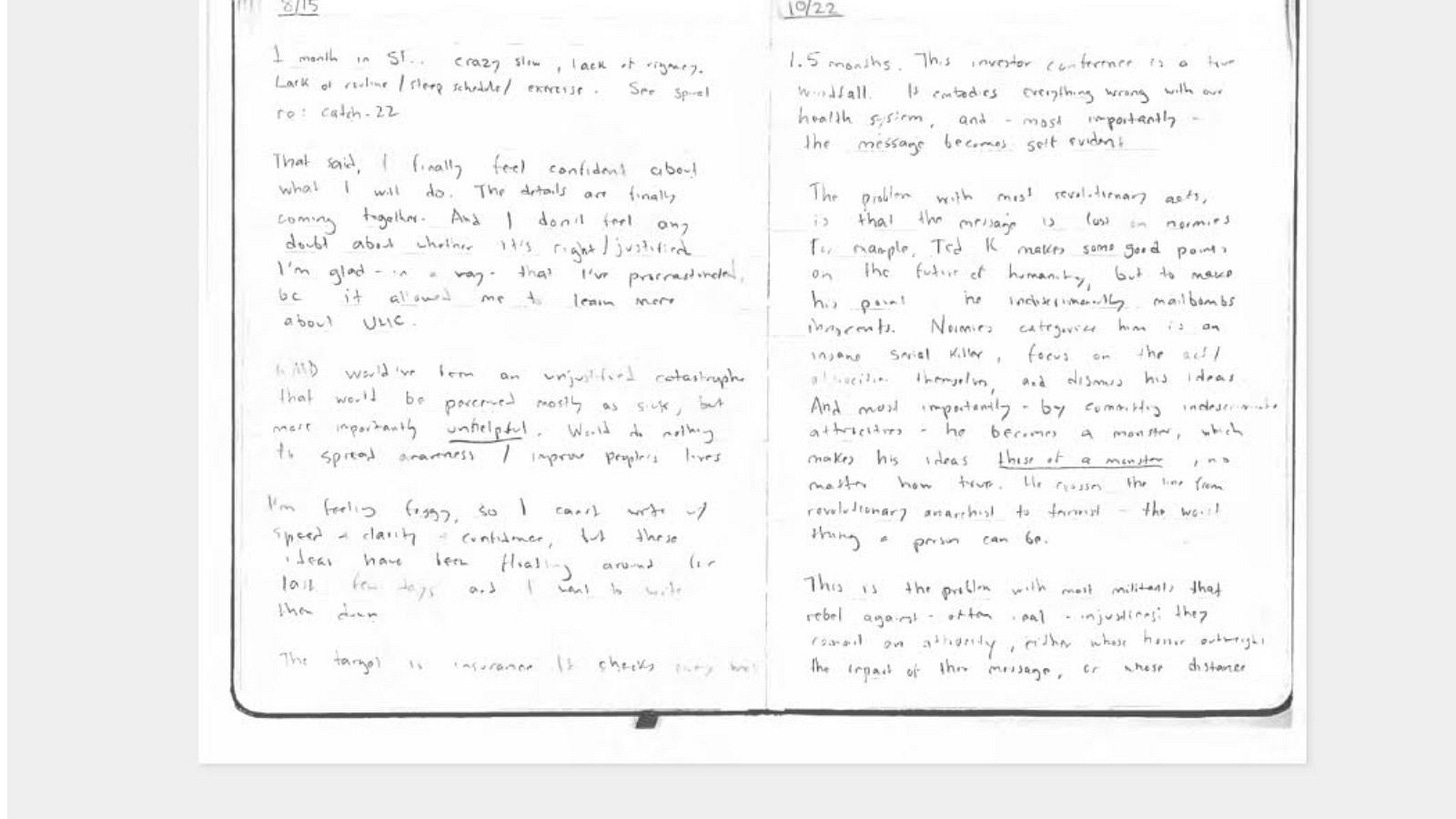 8/15
1 month in SF.. crazy slow, lack of
Lack of routine / sleep schedule / exercise. See spiral
re: catch-22
That said, I finally feel confident about
what I will do. The details are finally
coming together. And I don't feel any
doubt about whether it's right / justified
I'm glad - in a way - that I've procrastinated,
bc it allowed me to learn more
about UHC.
would've been an unjustified catastrophe
that would be perceived mostly as sick, but
more importantly unhelpful. Would do nothing
to spread awareness / improve people's lives
I'm feeling foggy, so I can't write w/
speed + clarity + confidence, but these
ideas have been floating around for
last few days and I want to write
them down
The target is insurance. It checks every
10/22
1.5 months. This investor conference is a true
windfall. It embodies everything wrong with our
health system, and - most importantly -
the message becomes self evident
The problem with most revolutionary acts,
is that the message is lost on normies
For example, Ted K makes some good points
on the future of humanity, but to make
his point he indiscriminantly mailbombs
innocents. Normies categorize him is an
insane serial killer, focus on the act/
atrocities themselves, and dismiss his ideas.
And most importantly - by committing indescriminate
atrocities - he becomes a monster, which
makes his ideas those of a monster, no
matter how true. He crosses the line from
revolutionary anarchist to terrorist - the worst
thing a person can be.
This is the problem with most militants that
rebel against - often real - injustices: they
commit an atrocity, either whose horror outweighs
the impact of their message, or whose distance